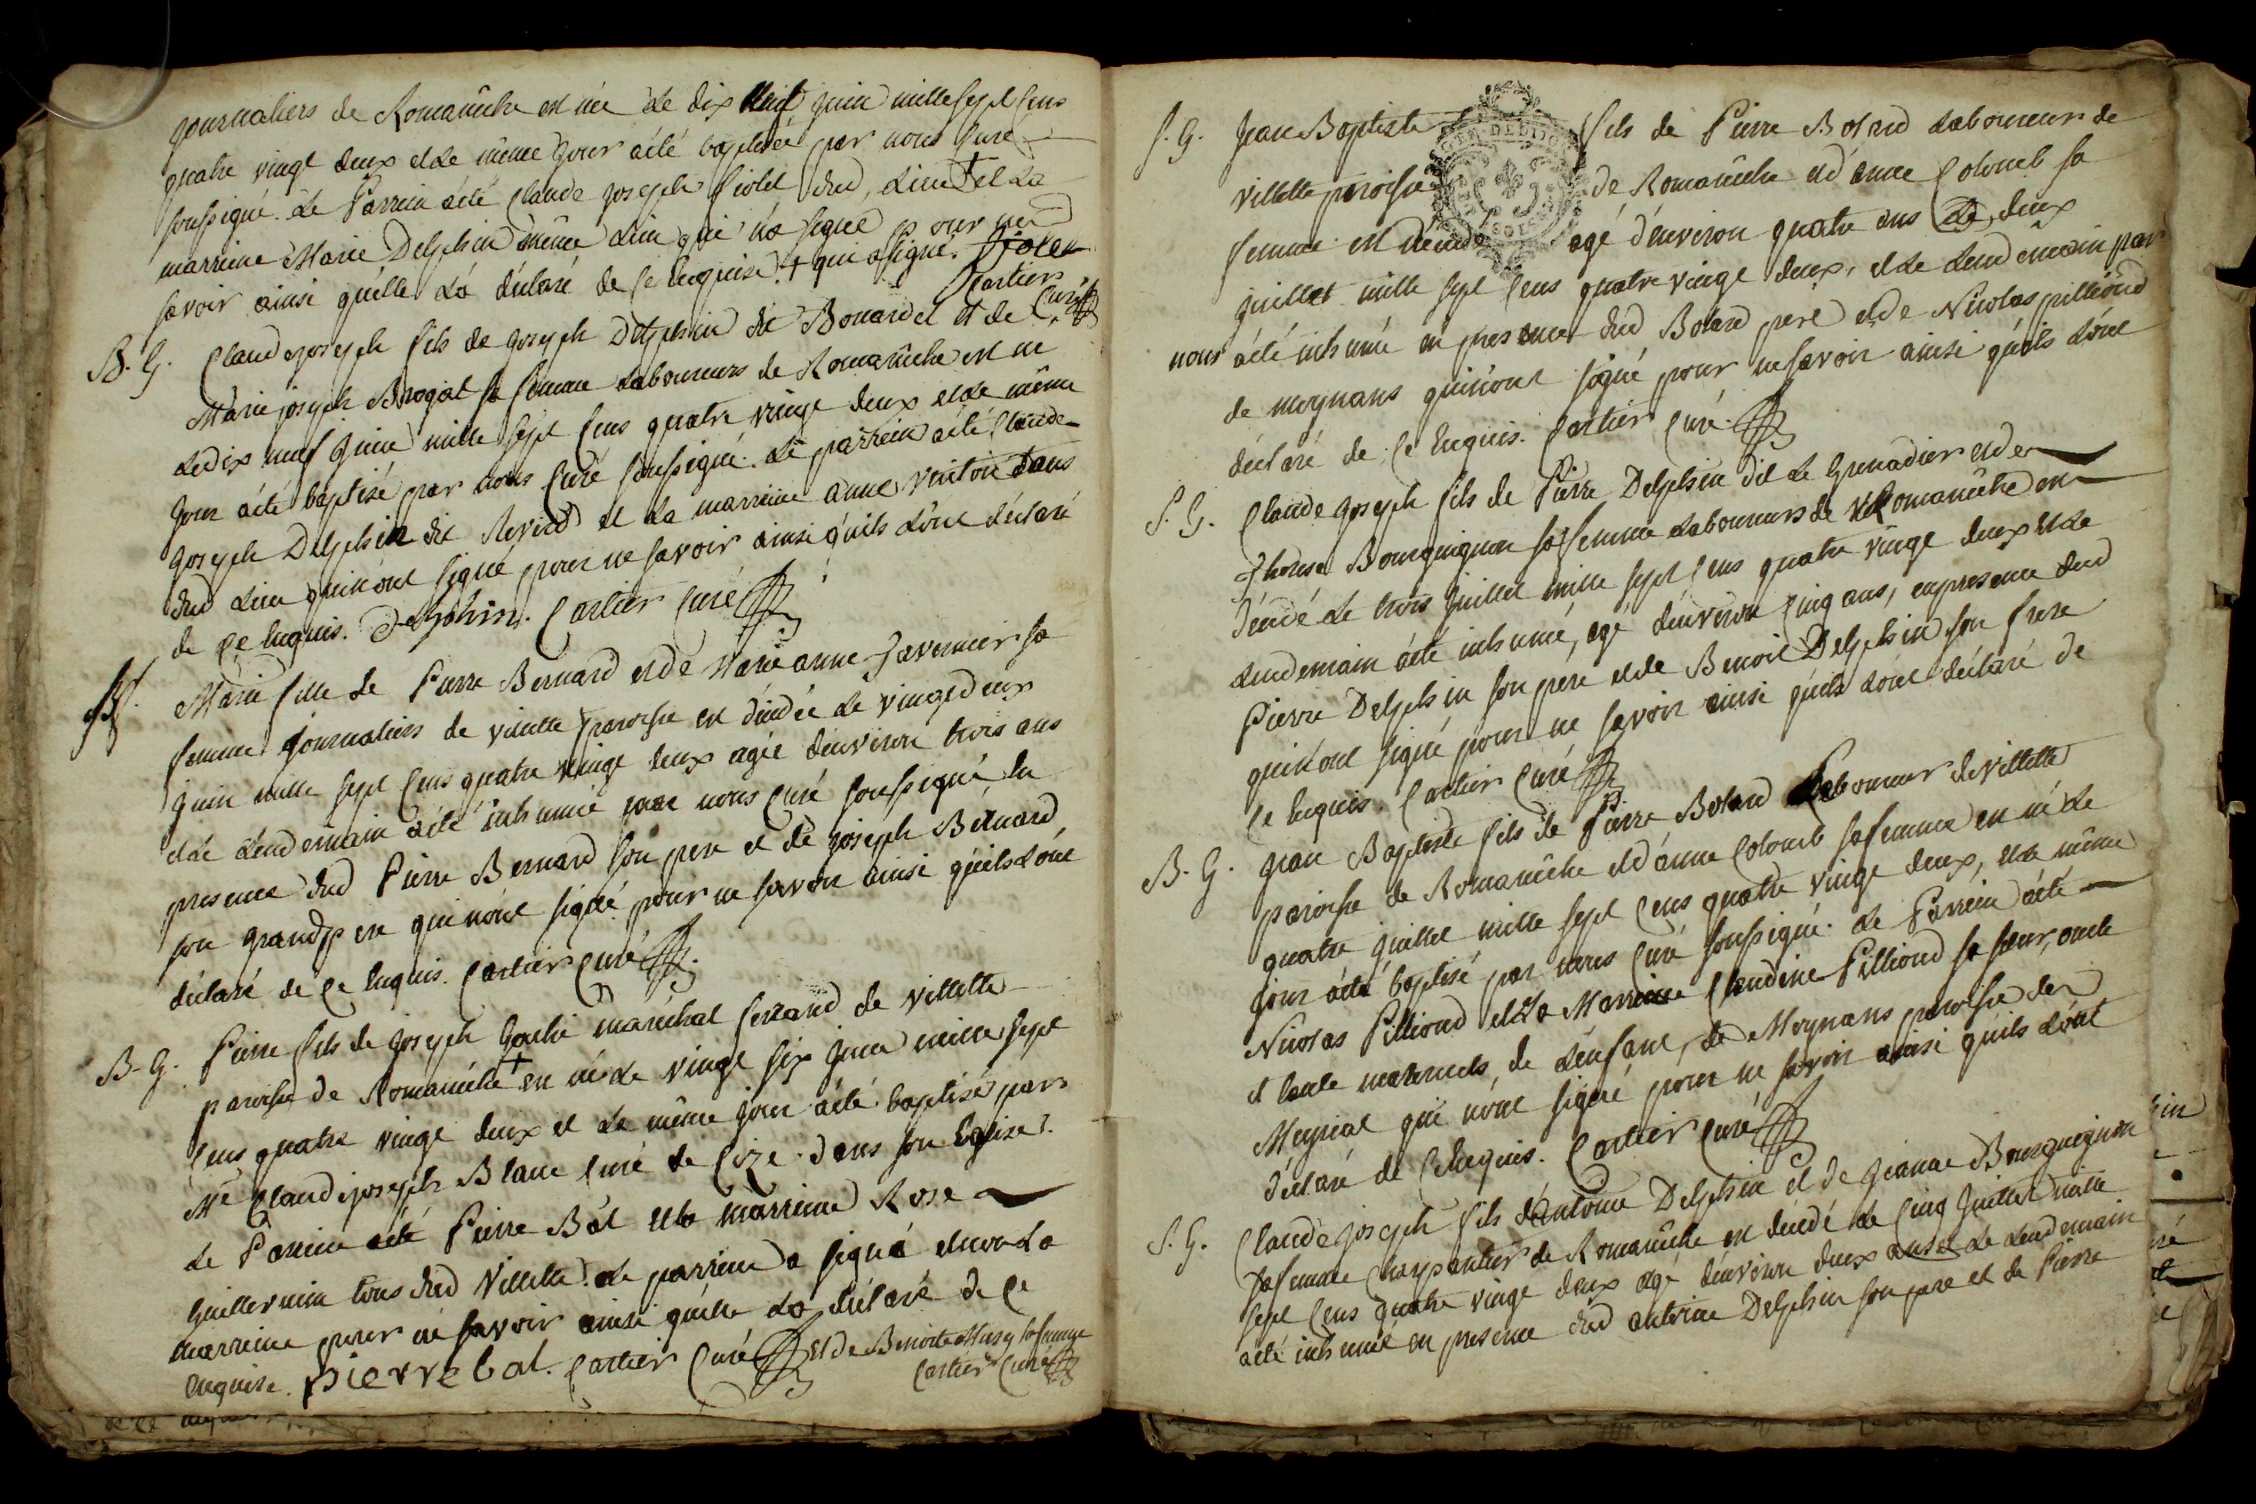 journaliers de Romanêche est née le dix huit juin mille sept cens
quatre vingt deux et le même jour a été baptisée par nous curé
soussigné. Le Parrein a été Claude joseph Violet dud. Lieu + et la
marreine Marie Delphin même Lieu qui n'a signé pour ne
savoir ainsi qu'elle l'a déclaré de ce Enquise. + qui a signé. Violet
Cartier
Curé
B. G. Claude joseph fils de joseph Delphin dit Bonardel et de
Marie joseph Brogat sa femme Laboureurs de Romanêche est né
Le dix neuf juin mille sept cens quatre vingt deux et le même
jour a été baptisé par nous Curé soussigné. Le parrein a été Claude
joseph Delphin dit Revird et la marreine anne tous
dud Lieu qui n'ont signé pour ne savoir ainsi qu'ils l'ont déclaré
de ce Enquis. Delphin. Cartier Curé
Marie fille de Pierre Bernard et de Marie anne Javernier sa
femme journaliers de villette paroisse est décédée le vingt deux
juin mille sept cens quatre vingt deux agée d'environ trois ans
et le lendemain a été inhumée par nous Curé soussigné En
presence dud Pierre Bernard son pere et de joseph Bernard
son grand pere qui n'ont signé pour ne savoir ainsi qu'ils l'ont
déclaré de ce Enquis. Cartier Curé
B. G. Pierre fils de joseph maréchal ferrand de villette
paroisse de Romanêche + est né le vingt six juin mille sept
cens quatre vingt deux et le même jour a été baptisé par
Mre Claude joseph Blanc Curé de Cize dans son Eglise.
Le Parrein a été Pierre Bal et la marreine Rose
Guillermin tous dud Villette. Le parrein a signé et non la
marreine pour ne savoir ainsi qu'elle l'a déclaré de ce
enquise. pierre bal. Cartier Curé + et de Benoite sa femme
Cartier Curé
S. G. Jean Baptiste fils de Pierre Bolard Laboureur de
villette paroisse de Romanêche et d'anne Colomb sa
femme est décédé agé d'environ quatre ans le deux
juillet mille sept cens quatre vingt deux, et le Lendemain par
nous a été inhumé en presence dud Bolard pere et de Nicolas pilliond
de moynans qui n'ont signé pour ne savoir ainsi qu'ils l'ont
déclaré de ce Enquis. Cartier Curé
S. G. Claude joseph fils de Pierre Delphin dit Le Grenadier et de
Therese Bourguignon sa femme Laboureurs de Romanêche est
décédé le trois juillet mille sept cens quatre vingt deux et le
Lendemain a été inhumé, agé d'environ cinq ans, en presence dud
Pierre Delphin son pere et de Benoit Delphin son frere
qui n'ont signé pour ne savoir ainsi qu'ils l'ont déclaré de
ce Enquis. Cartier Curé
B. G. Jean Baptiste fils de Pierre Bolard Laboureur de villette
paroisse de Romanêche et d'anne Colomb sa femme est né le
quatre juillet mille sept cens quatre vingt deux, et le même
jour a été baptisé par nous Curé soussigné. Le Parrein a été
Nicolas Pilliond et la Marreine Claudine Pilliond sa sœur, oncle
et tante maternels de l'enfant, de Moynans paroisse de
Meyriat qui n'ont signé pour ne savoir ainsi qu'ils l'ont
déclaré de ce Enquis. Cartier Curé
S. G. Claude joseph fils d'antoine Delphin et de jeanne Bourguignon
sa femme Charpentier de Romanêche est décédé le cinq juillet mille
sept cens quatre vingt deux agé d'environ deux ans et le lendemain
a été inhumé en presence dud antoine Delphin son pere et de Pierre